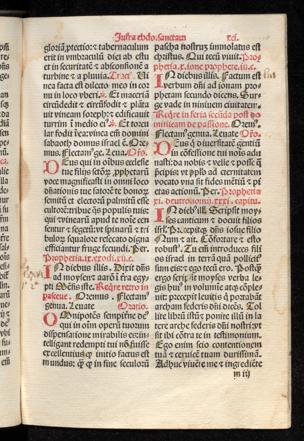 Infra ebdo. sanctam xci.
gloriã ptectio: ⁊ tabernaculum
erit in vmbraculũ diei ab estu
et in securitatẽ ⁊ absconsionẽ a
turbine ⁊ a pluuia. Tract⁹. Ui
nea facta est dilecto meo in cor
nu in loco vberi. ℣. Et maceriã
circũdedit ⁊ circũfodit ⁊ plãta
uit vineam sorech: ⁊ edificauit
turrim ĩ medio ei⁹. ℣. Et torcu
lar fodit ĩ ea: vinea em̃ domini
sabaoth domus israel ẽ. Ore
mus. Flectam⁹ ge. Leua. Oro.
Deus qui in oĩbus ecclesie
tue filijs
magnificasti in omni loco
semitũ et electorũ palmitũ effe
cultorẽ: tribue populis tuis:
qui vinearũ apud te noĩe cen
sentur ⁊ segetũ: vt spinarũ ⁊ tri
buloꝝ squalore resecato digna
efficiantur fruge fecundi. Per.
Prophetia. ix. exodi. xij. c.
In diebus illis. Dixit dñs
ad moysen ⁊ aaron ĩ terra egy
pti Mẽsis iste. Require retro in
Oremus. Flectam⁹
genua. Leuate Oratio.
Omnipotẽs sempiterne de⁹
qui in oĩm operũ tuorum
dispensatione mirabilis es: in
telligant redempti tui nõ fuisse
excellentius ꝙ initio factus est
mundus: ꝙ ꝙ in fine seculorũ
pascha nostrum immolatus est
christus. Qui tecũ viuit. Pro
phetia. x. ione prophete. iij. c.
In diebus illis. Factum est
verbum dñi ad ionam pro
phetam secundo dicens. Sur
ge vade in niniuem ciuitatem.
Reqre in feria secũda post do
minicam de passione. Orem⁹.
Flectam⁹ genua. Leuate Oro.
Deus q̃ diuersitatẽ gentiũ
in cõfessione tui noĩs adu
nasti: da nobis ⁊ velle ⁊ posse q̃
precipis: vt pplo ad eternitatem
vocato vna sit fides mẽtiũ ⁊ pi
etas actionũ. Per. Prophetia
xi. deutronomij. xxxi. capitu.
In dieb⁹ ill. Scripsit moy
ses canticum ⁊ docuit filios
isrl. Precepitq̃ dñs iosue filio
Nun ⁊ ait. Cõfortare ⁊ esto
robust⁹. Tu em̃ introduces filios
israel in terrã quã pollicit⁹
sum eis: ⁊ ego tecũ ero. Postq̃
ergo scripsit moyses verba le
gis hui⁹ in volumine atq̃ cõple
uit: precepit leuitis q̃ portabãt
arcbam federis dñi dicẽs. Tol
lite librũ istũ: ⁊ ponite illũ in la
tere arche federis dñi nostri: vt
sit ibi cõtra te in testimonium.
Ego enim scio contentionem
tuã ⁊ ceruicẽ tuam durissimã.
Adhuc viuẽte me ⁊ ingrediẽte
m iij